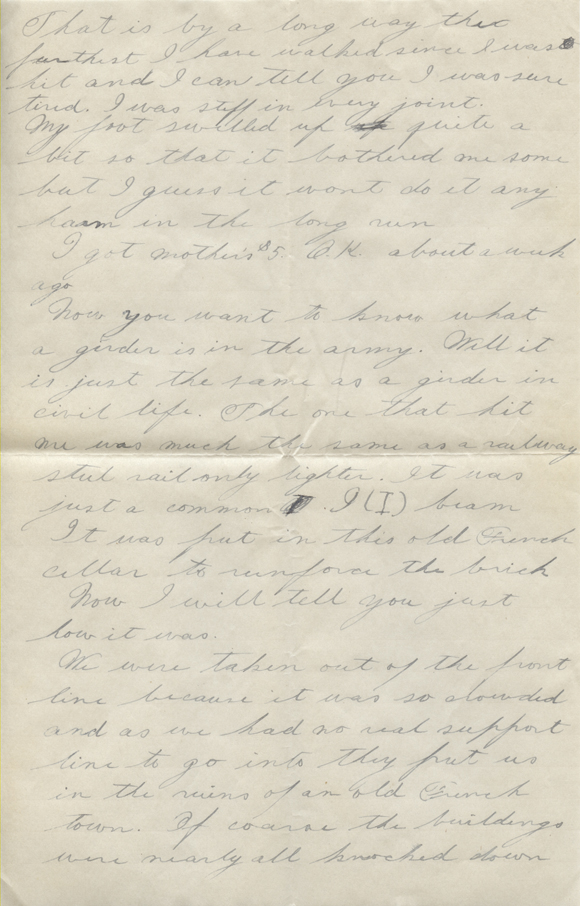 That is by a long way the
furthest I have walked since I was
hit and I can tell you I was sure
tired. I was stiff in every joint.
My foot swelled up quite a
bit so that it bothered me some
but I guess it wont do it any
harm in the long run
I got mother's $5. O.K. about a week
ago
Now you want to know what
a girder is in the army. Well it
is just the same as a girder in
civil life. The one that hit
me was much the same as a railway
steel rail only lighter. It was
just a common . I (I) beam
It was put in this old French
cellar to reinforce the brick
Now I will tell you just
how it was.
We were taken out of the front
line because it was so crowded
and as we had no real support
line to go into they put us
in the ruins of an old French
town. Of coarse the buildings
were nearly all knocked down